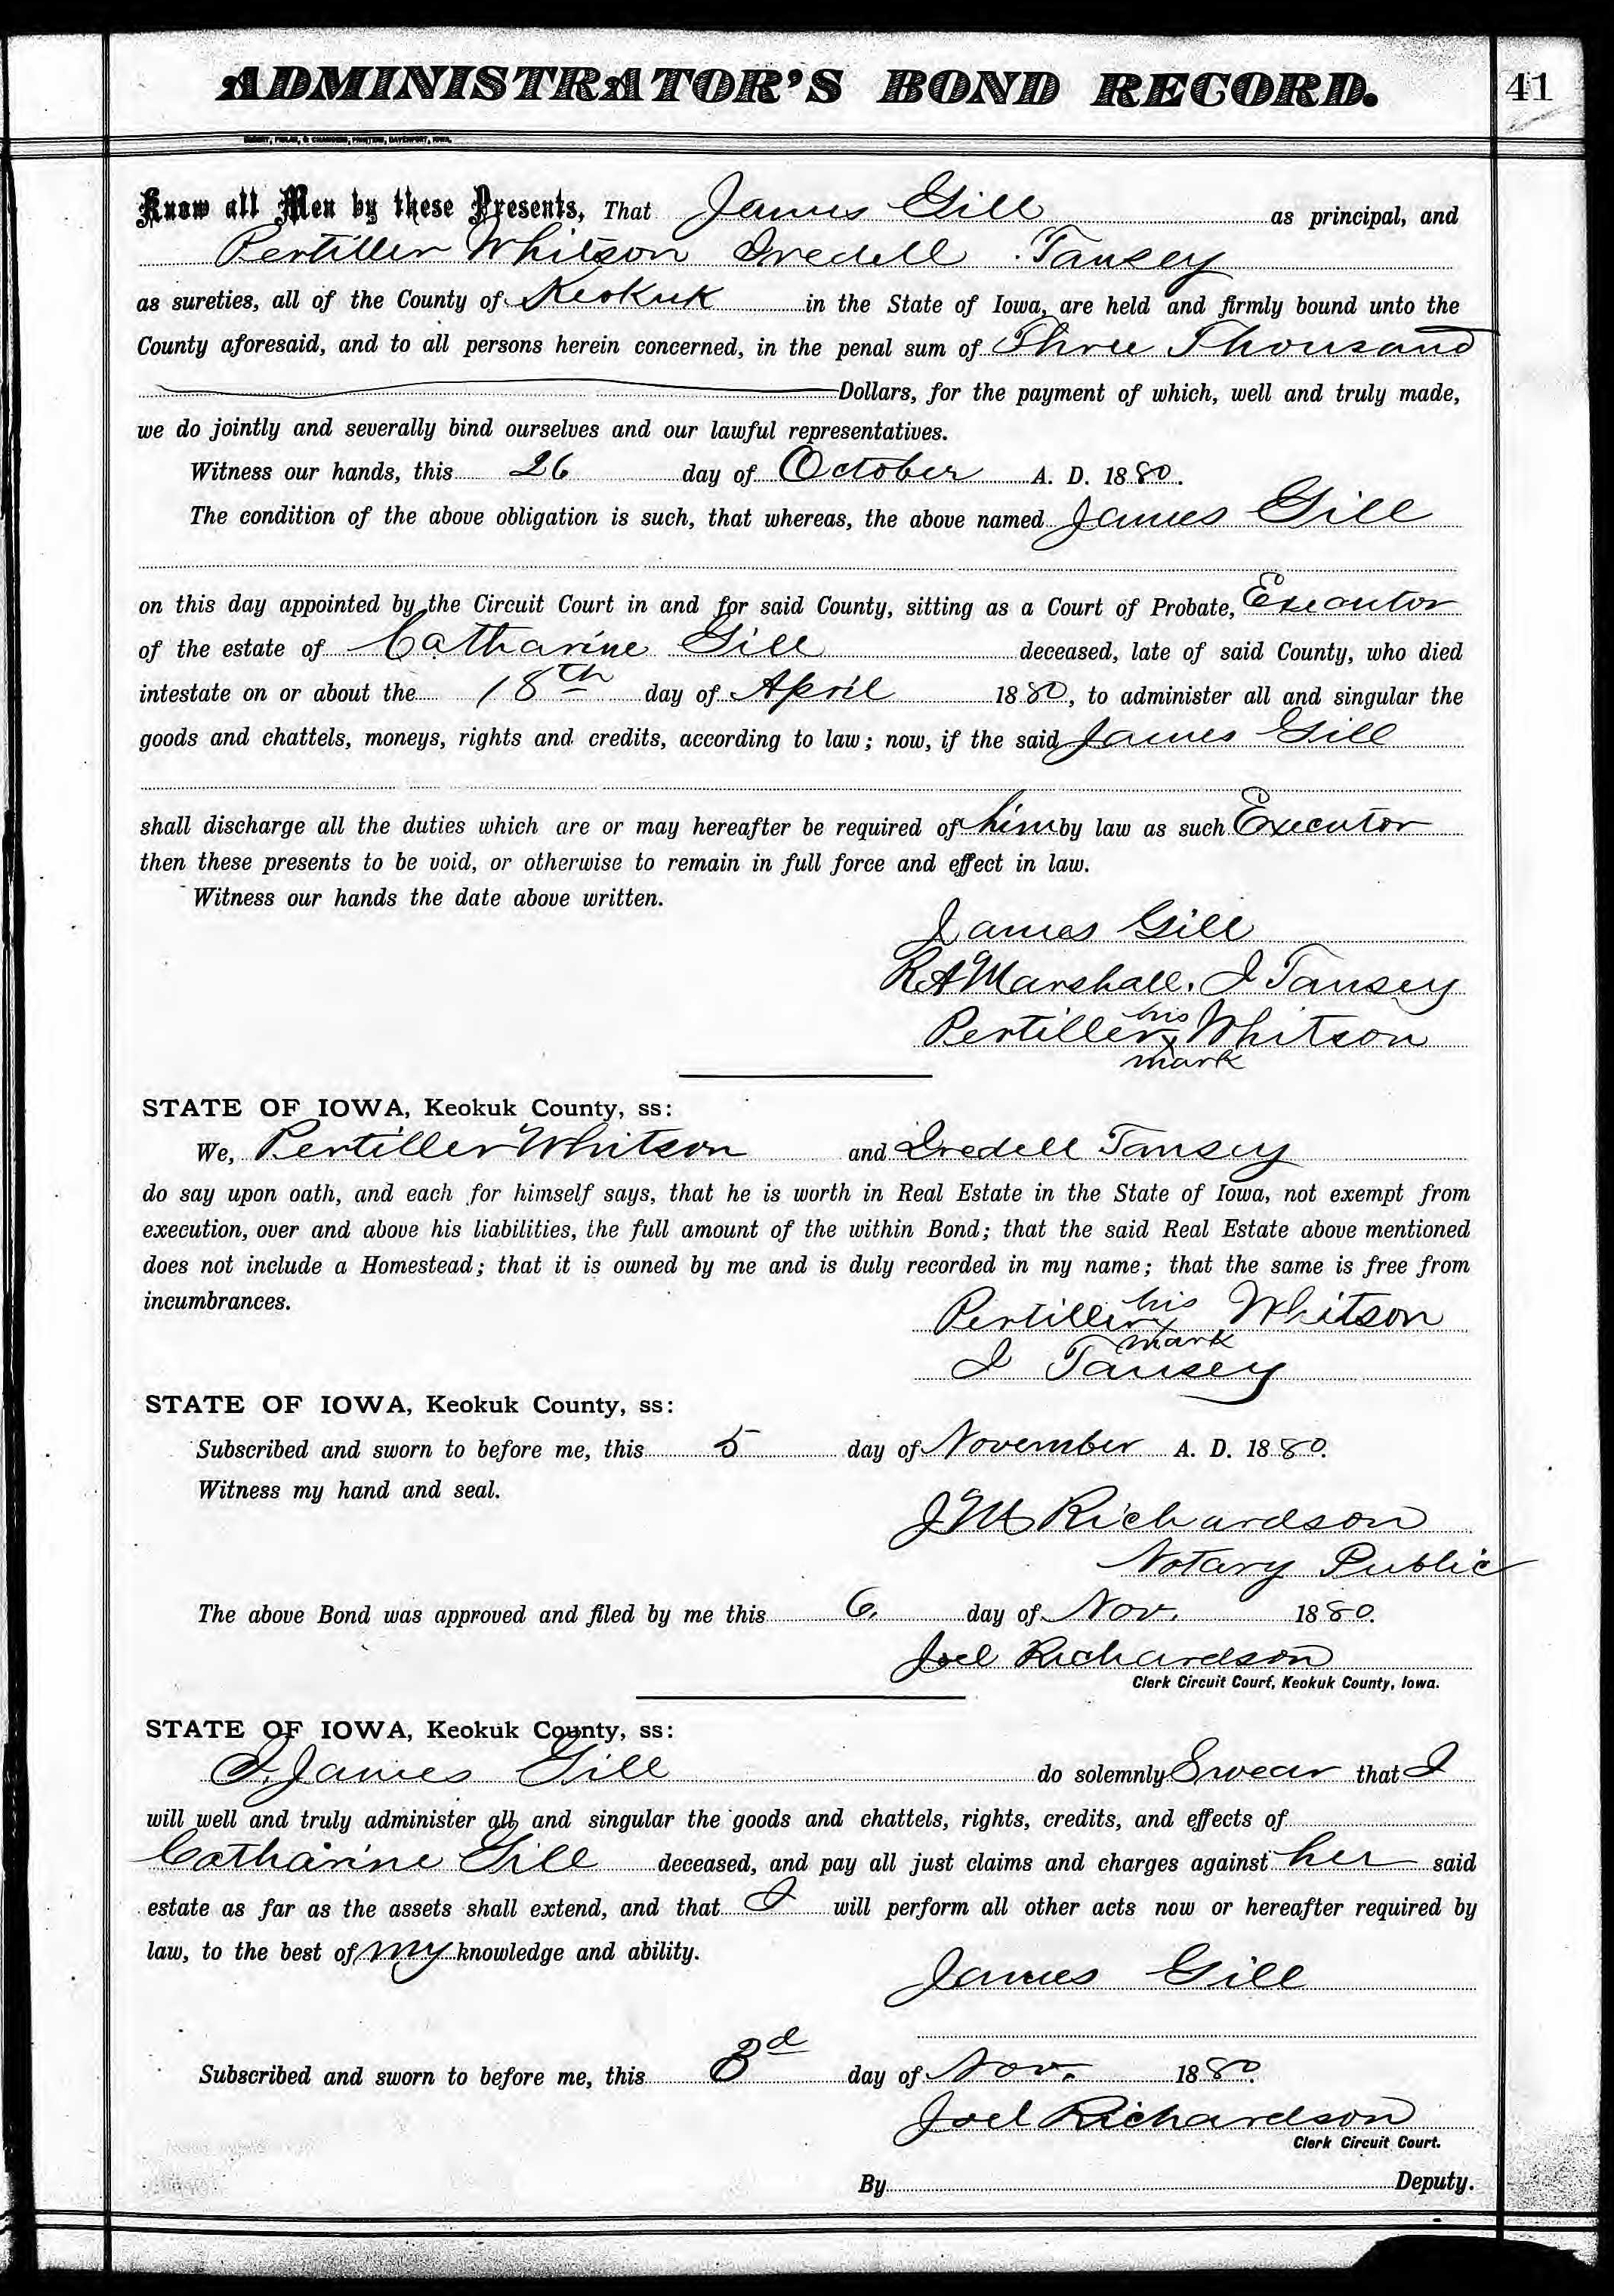 ADMINISTRATOR'S BOND RECORD. 41
Know all Men by these Presents, That James Gill as principal, and
Pertiller Whitson Iredell Tansey
as sureties, all of the County of Keokuk in the State of Iowa, are held and firmly bound unto the
County aforesaid, and to all persons herein concerned, in the penal sum of Three Thousand
Dollars, for the payment of which, well and truly made,
we do jointly and severally bind ourselves and our lawful representatives.
Witness our hands, this 26 day of October A. D. 1880.
The condition of the above obligation is such, that whereas, the above named James Gill
on this day appointed by the Circuit Court in and for said County, sitting as a Court of Probate, Executor
of the estate of Catharine Gill deceased, late of said County, who died
intestate on or about the 18th day of April 1880, to administer all and singular the
goods and chattels, moneys, rights and credits, according to law; now, if the said James Gill
shall discharge all the duties which are or may hereafter be required of him by law as such Executor
then these presents to be void, or otherwise to remain in full force and effect in law.
Witness our hands the date above written.
James Gill
R A Marshall. I Tansey
his
Pertiller x Whitson
mark
STATE OF IOWA, Keokuk County, ss:
We, Pertiller Whitson and Iredell Tansey
do say upon oath, and each for himself says, that he is worth in Real Estate in the State of Iowa, not exempt from
execution, over and above his liabilities, the full amount of the within Bond; that the said Real Estate above mentioned
does not include a Homestead; that it is owned by me and is duly recorded in my name; that the same is free from
incumbrances.
his
Pertiller x Whitson
mark
I Tansey
STATE OF IOWA, Keokuk County, ss:
Subscribed and sworn to before me, this 5 day of November A. D. 1880.
Witness my hand and seal.
J M Richardson
Notary Public
The above Bond was approved and filed by me this 6. day of Nov. 1880.
Joel Richardson
Clerk Circuit Court, Keokuk County, Iowa.
STATE OF IOWA, Keokuk County, ss:
I. James Gill do solemnly Swear that I
will well and truly administer all and singular the goods and chattels, rights, credits, and effects of
Catharine Gill deceased, and pay all just claims and charges against her said
estate as far as the assets shall extend, and that I will perform all other acts now or hereafter required by
law, to the best of my knowledge and ability.
James Gill
Subscribed and sworn to before me, this 3d day of Nov. 1880.
Joel Richardson
Clerk Circuit Court.
By Deputy.